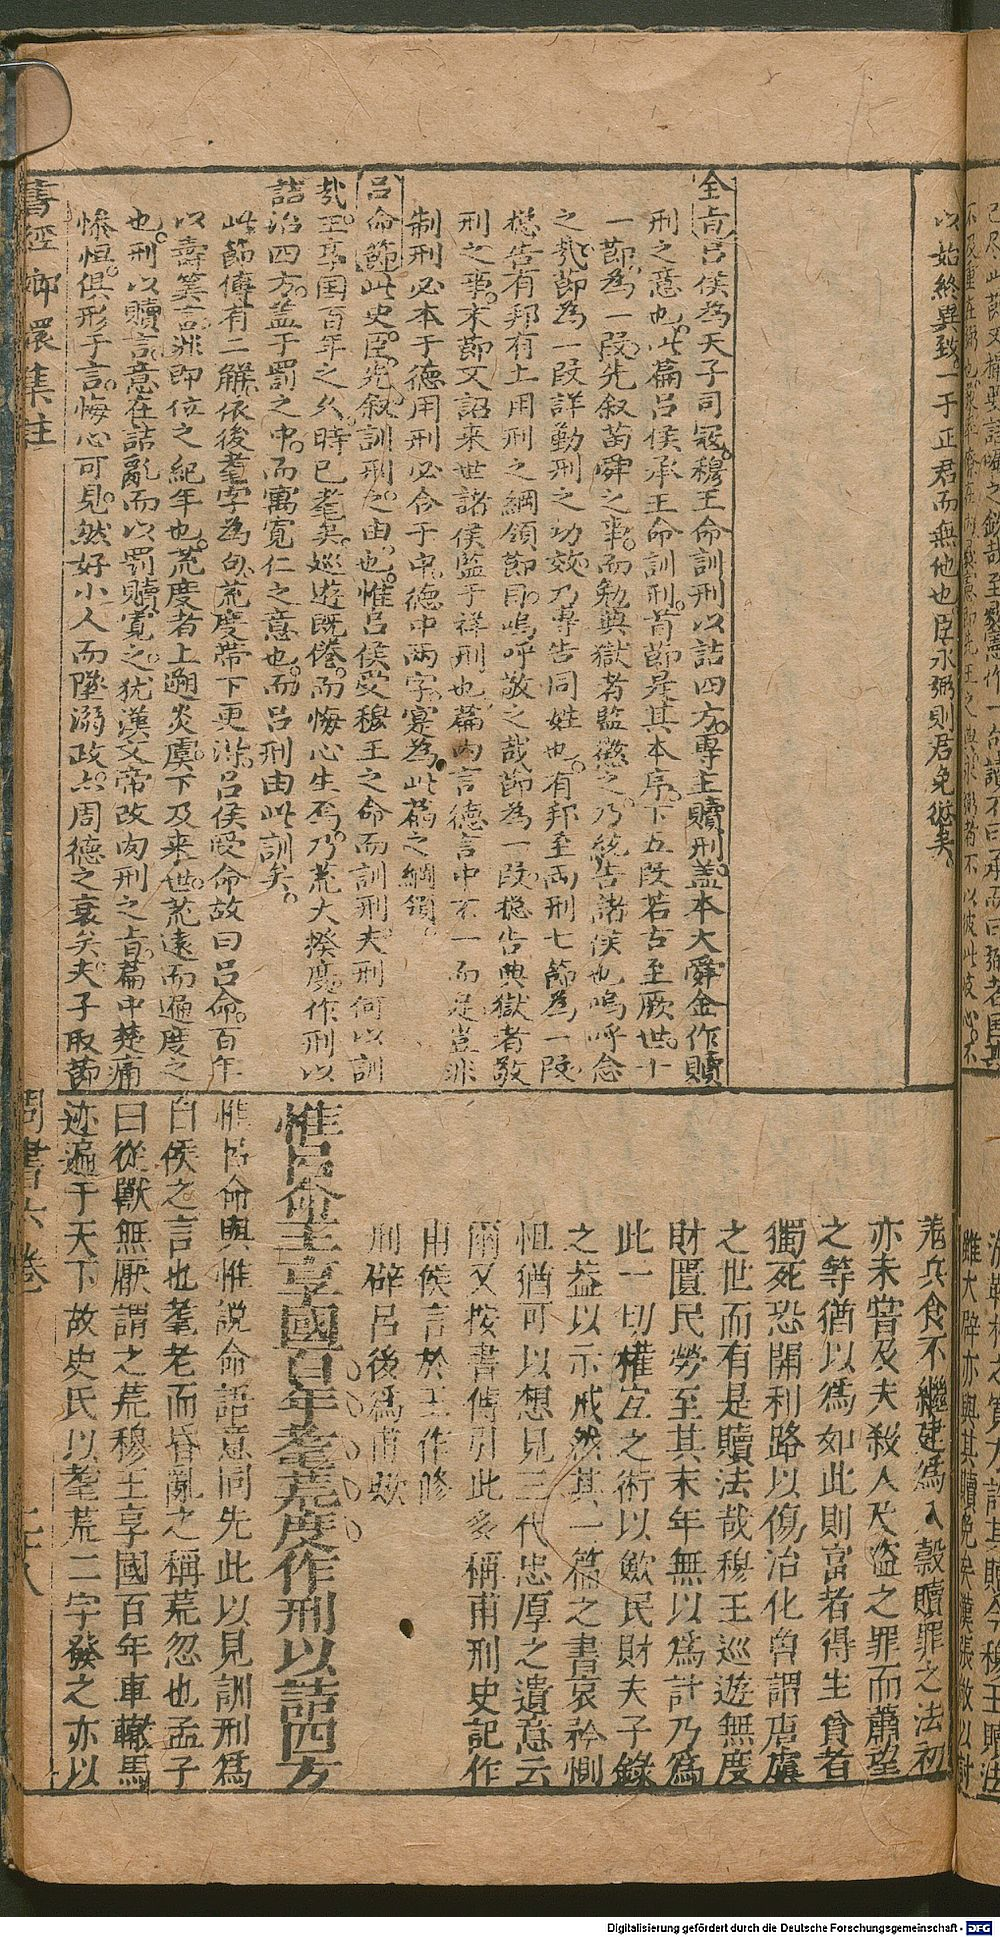 以始終異致一于正君而無他也臣永弼則君免愆矣
全旨呂侯為天子司寇穆王命訓刑以詰四方專主贖刑蓋本大舜金作贖
刑之意也此篇呂侯承王命訓刑首節是其本序下五段若古至厥世十
一節為一段先叙苗舜之事而勉典獄者監懲之乃統告諸侯也嗚呼念
之哉節為一段詳勤刑之功效乃專告同姓也有邦至兩刑七節為一段
總告有邦有土用刑之綱領節目嗚呼敬之哉節為一段總告典獄者敬
刑之事末節又詔來世諸侯監于祥刑也篇內言德言中不一而足豈非
制刑必本于德用刑必合于中德中兩字寔為此篇之綱領
呂命節此史臣先叙訓刑之由也惟呂侯受穆王之命而訓刑夫刑何以訓
哉王享国百年之久時已耄矣巡遊既倦而悔心生焉乃荒大揆度作刑以
詰治四方蓋于罰之中而寓寬仁之意也而呂刑由此訓矣
此節傳有二解依後耄字為句荒度帶下更渉呂侯受命故曰呂命百年
以壽筭言洲即位之紀年也荒度者上遡炎虞下及来世荒遠而遍度之
也刑以贖言意在詰亂而以罰贖寬之犹漢文帝改肉刑之旨篇中楚痛
慘怛俱形于言悔心可見然好小人而墜溺政亦周德之衰矣夫子取節
羗兵食不繼建為入穀贖罪之法初
亦未嘗及夫殺人及盜之罪而蕭望
之等猶以為如此則富者得生貧者
獨死恐開利路以傷治化曾謂唐虞
之世而有是贖法哉穆王巡遊無度
財匱民勞至其末年無以為計乃為
此一切權宜之術以斂民財夫子錄
之蓋以示戒然其一篇之書哀矜惻
怛猶可以想見三代忠厚之遺意云
爾又按書傳引此多稱甫刑史記作
甫侯言於王作修
刑辟呂後為甫歟
惟呂命王享國百年耄荒度作刑以詰四方
惟呂命與惟說命語意同先此以見訓刑為
呂侯之言也耄老而昏亂之稱荒忽也孟子
曰從獸無厭謂之荒穆王享國百年車轍馬
迹遍于天下故史氏以耄荒二字發之亦以
書經嫏嬛集註
周書六卷
Digitalisierung gefördert durch die Deutsche Forschungsgemeinschaft - DFG